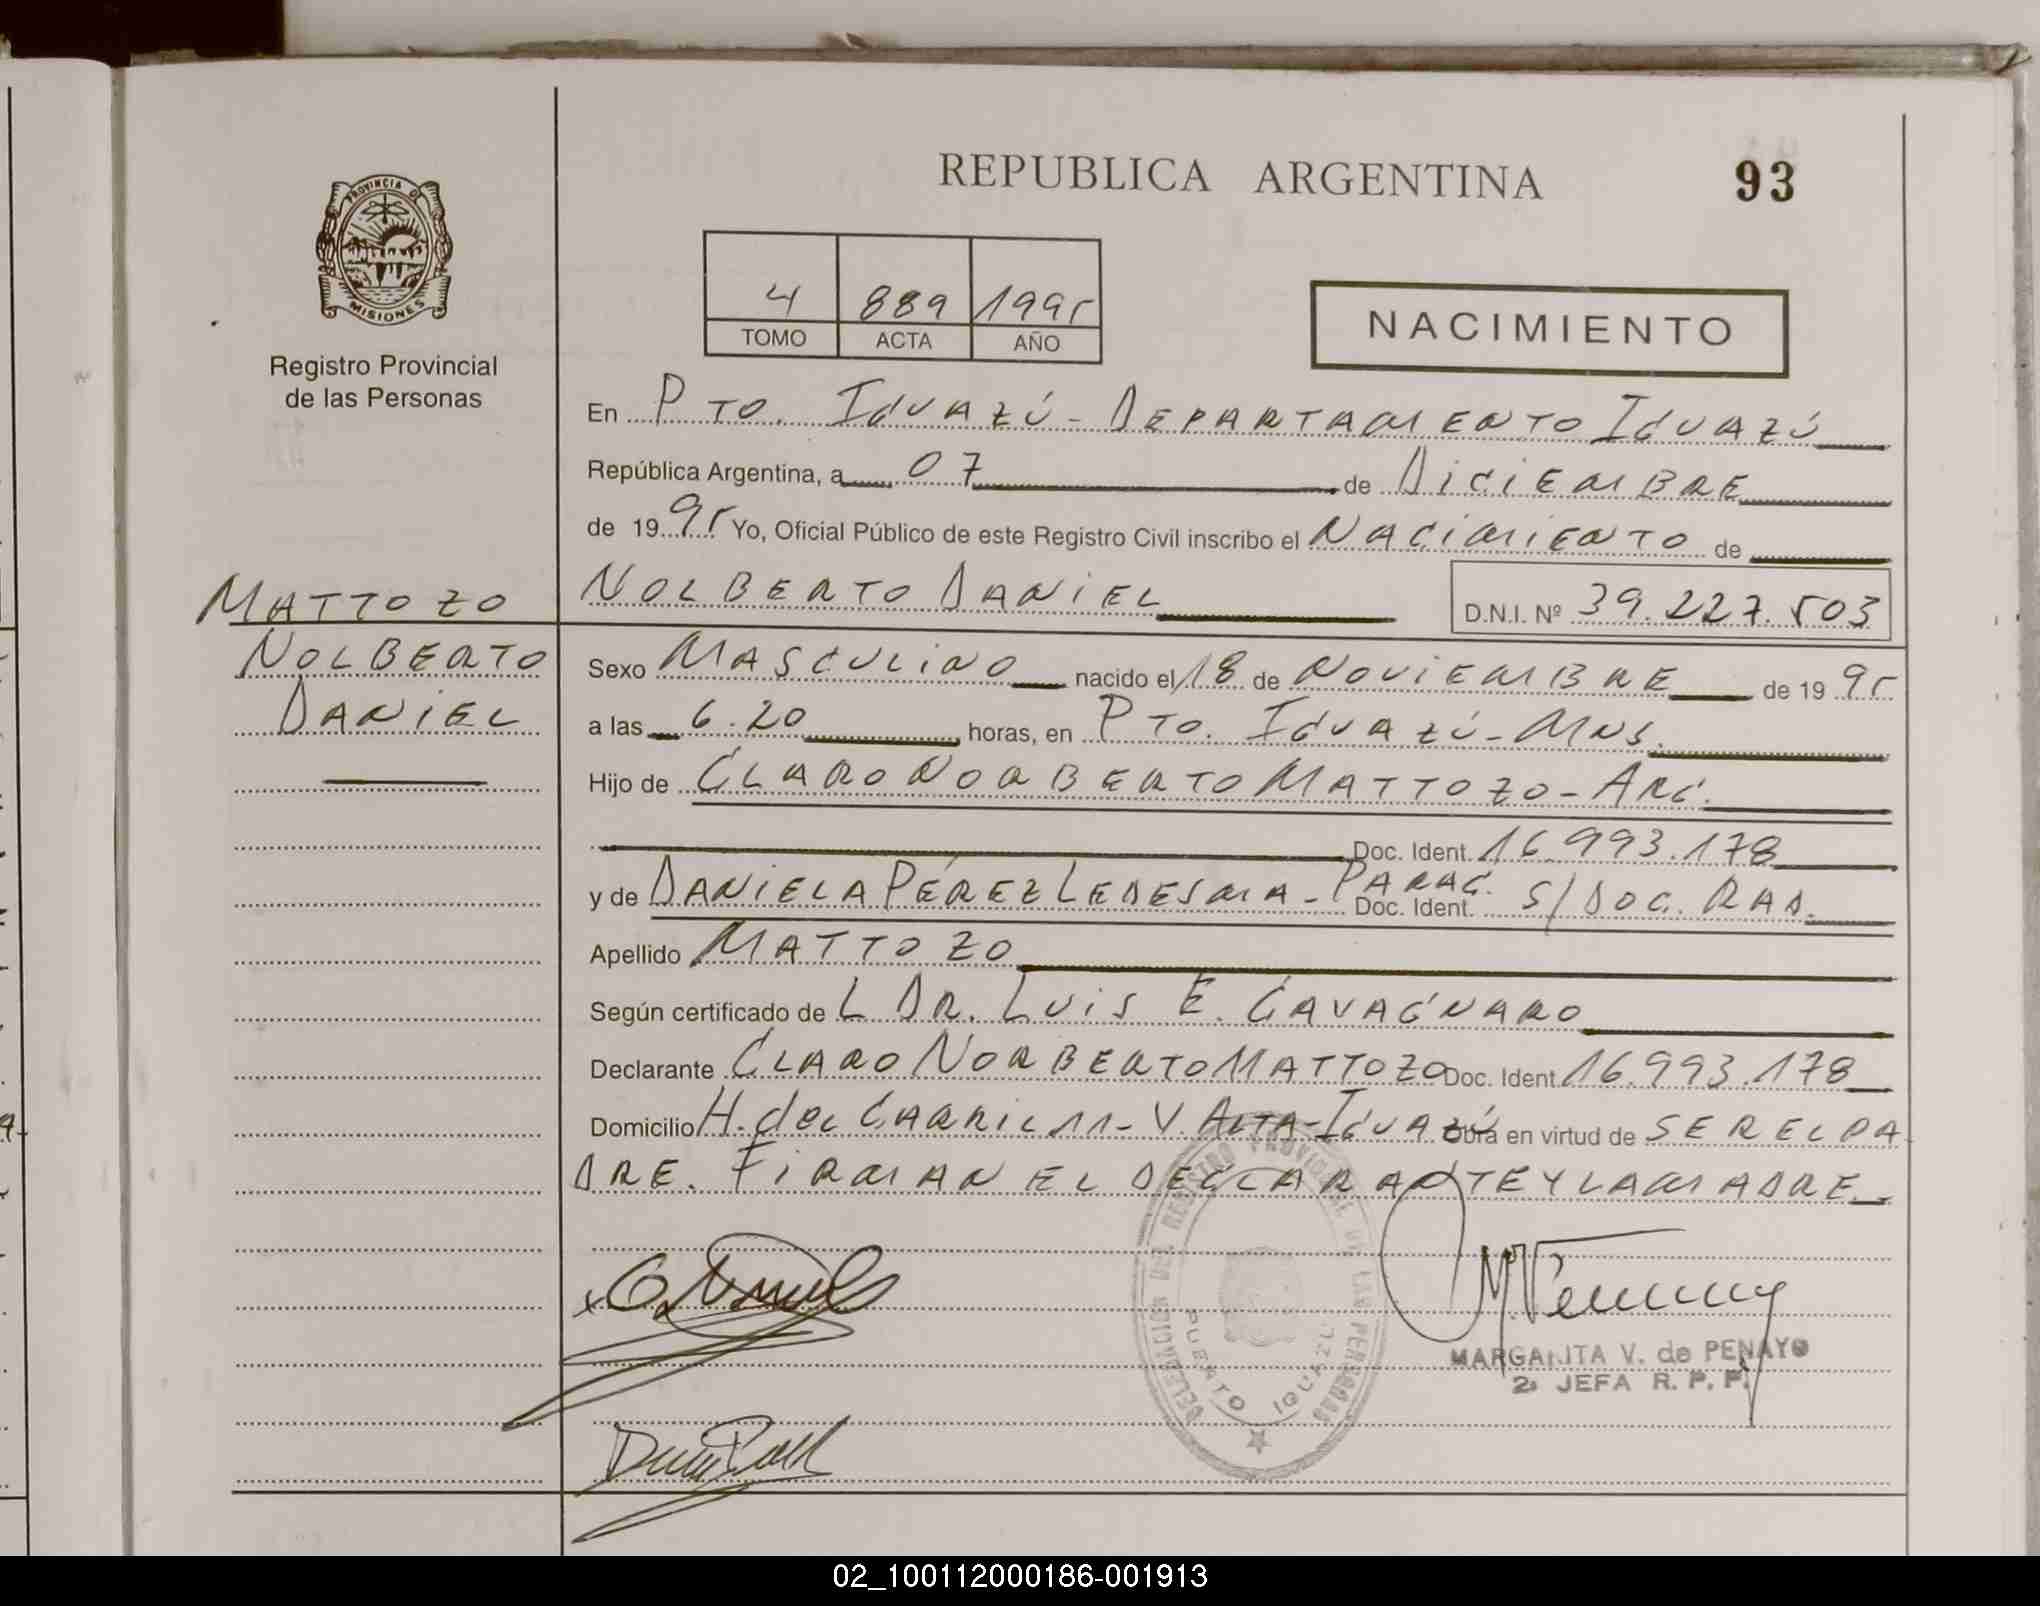 REPUBLICA ARGENTINA
93
PROVINCIA DE
MISIONES
Registro Provincial
de las Personas
4 889 1995
TOMO ACTA AÑO
NACIMIENTO
En PTO. IGUAZÚ - DEPARTAMENTO IGUAZÚ
República Argentina, a 07 de DICIEMBRE
de 1995 Yo, Oficial Público de este Registro Civil inscribo el NACIMIENTO de
MATTOZO
NOLBERTO
DANIEL
NOLBERTO DANIEL D.N.I. Nº 39.227.503
Sexo MASCULINO nacido el 18 de NOVIEMBRE de 1995
a las 6.20 horas, en PTO. IGUAZÚ - MNS.
Hijo de CLARO NORBERTO MATTOZO - ARG.
Doc. Ident. 16.993.178
y de DANIELA PÉREZ LEDESMA - PARAG. Doc. Ident. S/DOC. RAD.
Apellido MATTOZO
Según certificado de L DR. LUIS E. CAVAGNARO
Declarante CLARO NORBERTO MATTOZO Doc. Ident 16.993.178
Domicilio H. del CARRIL 11 - V. ALTA - IGUAZÚ Obra en virtud de SER EL PA
DRE. FIRMAN EL DECLARANTE Y LA MADRE.
DELEGACION DEL REGISTRO PROVINCIAL DE LAS PERSONAS
PUERTO IGUAZU
MARGARITA V. de PENAYO
2ª JEFA R. P. P.
02_100112000186-001913